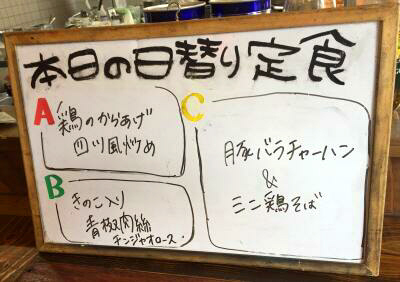 本日の日替り定食
A 鶏のからあげ
四川風炒め
B きのこ入り
青椒肉絲
チンジャオロース
C 豚バラチャーハン
&
ミニ鶏そば